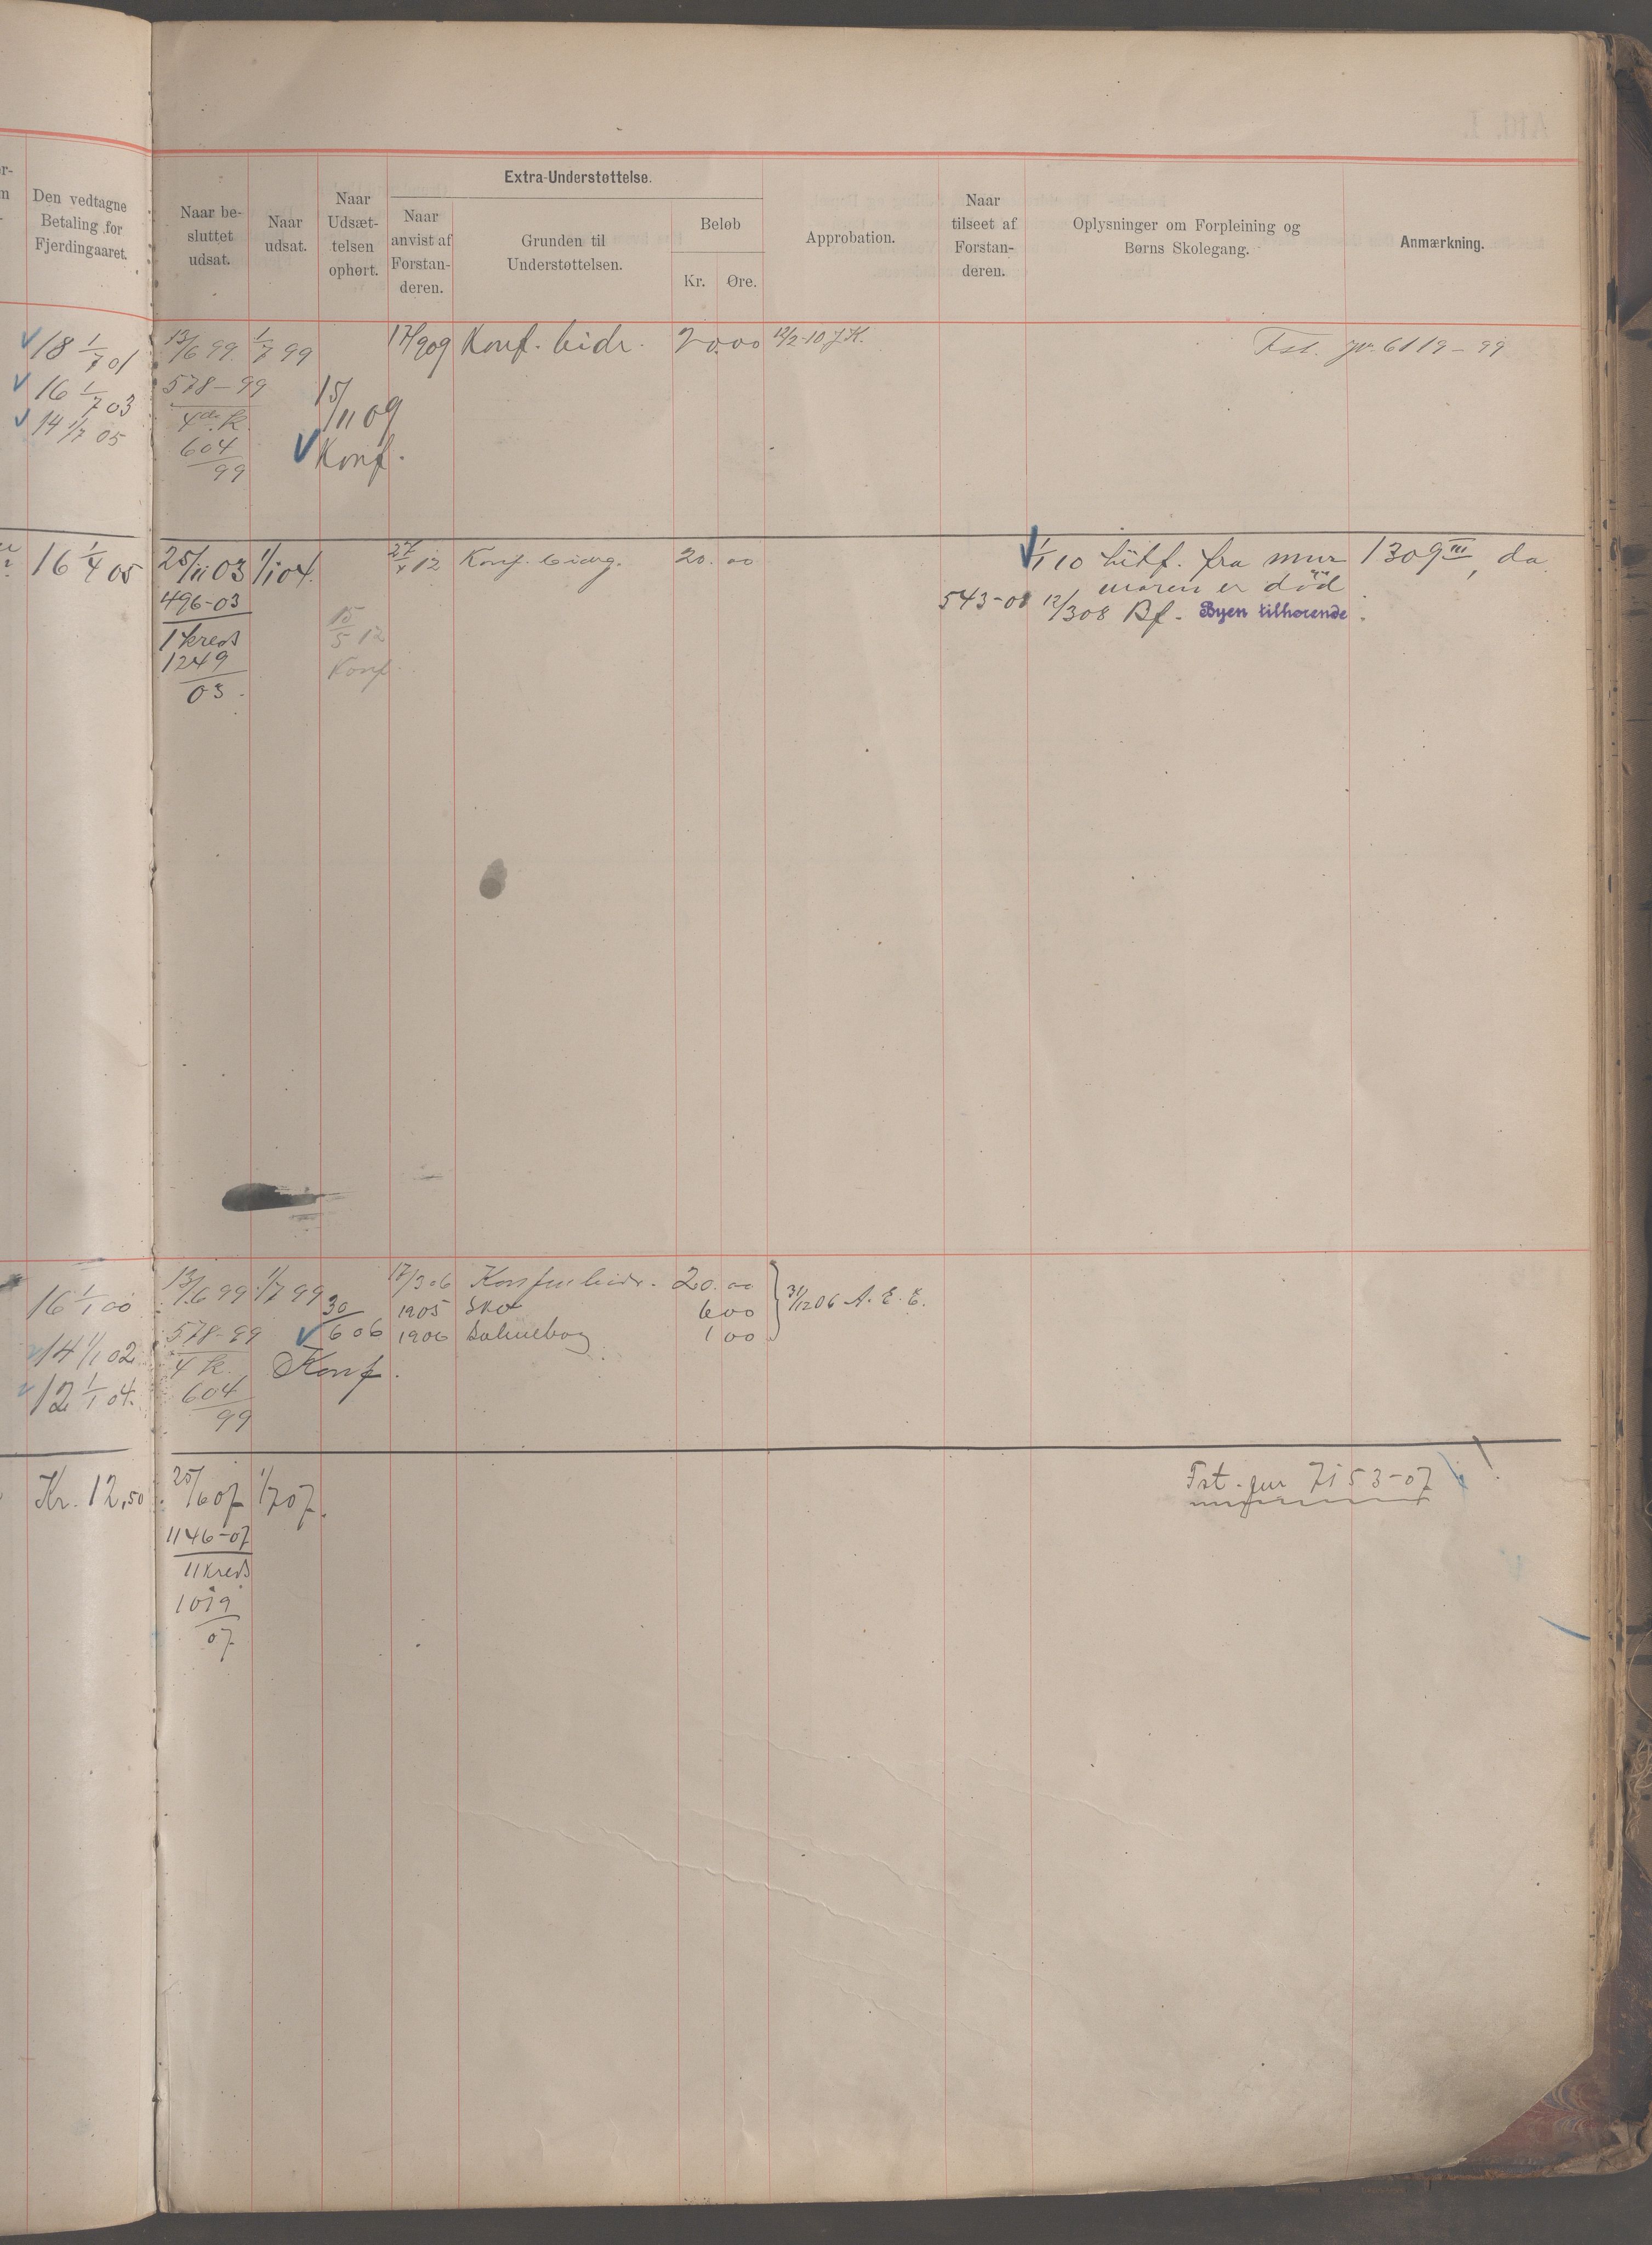 Den vedtagne
Betaling for
Fjerdingaaret.
Naar be-
sluttet
udsat.
Naar
udsat.
Naar
Udsæt-
telsen
ophørt.
Extra-Understøttelse.
Naar
anvist af
Forstan-
deren.
Grunden til
Understøttelsen.
Beløb
Kr.
Øre.
Approbation.
Naar
tilseet af
Forstan-
deren.
Oplysninger om Forpleining og
Børns Skolegang.
Anmærkning.
18 1/7 01
16 1/7 03
14 1/7 05
13/6 99. 1/7 99
578-99
4de K.
604
99
15/11 09
Konf.
17/909 Konf. bidr. 20.00 12/2-10 J.K.
Fst. jr. 6119-99
16 1/4 05
25/11 03 1/1 04.
496-03
1 kreds
1249
03.
15
5 12
Konf.
27/x 12 Konf. bidrg. 20.00
1/1 10 fra mur 1309 III, da
moren er död
543-08 12/308 Bf. Byen tilhørende.
16 1/1 00
14 1/1 02
12 1/1 04.
13/6 99 1/7 99
578-99
4 K.
604
99
30
6 06
Konf.
17/3 06 20.00
1905 Sko 6 00
1906 Salmebog 1 00
31/12 06 A. E. E.
Kr. 12,50
25/6 07 1/7 07.
1146-07
11 kreds
1019
07
Fst. jur 7153-07